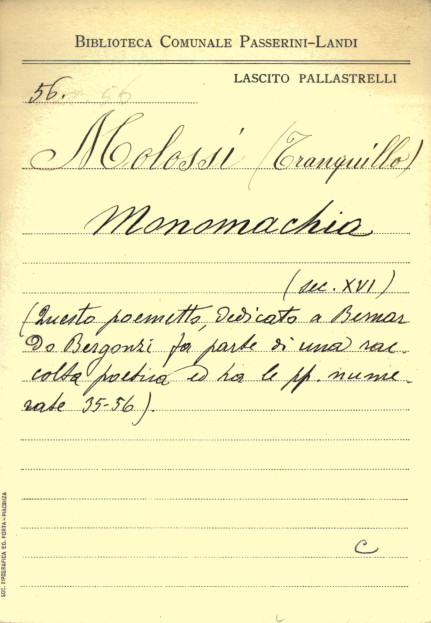 BIBLIOTECA COMUNALE PASSERINI-LANDI
LASCITO PALLASTRELLI
56.
Molossi (Tranquillo)
Monomachia
(sec. XVI)
(Questo poemetto, dedicato a Bernar
do Bergonzi fa parte di una rac-
colta poetica ed ha le pp. nume-
rate 35-56).
C
SOC. TIPOGRAFICA ED. PORTA - PIACENZA